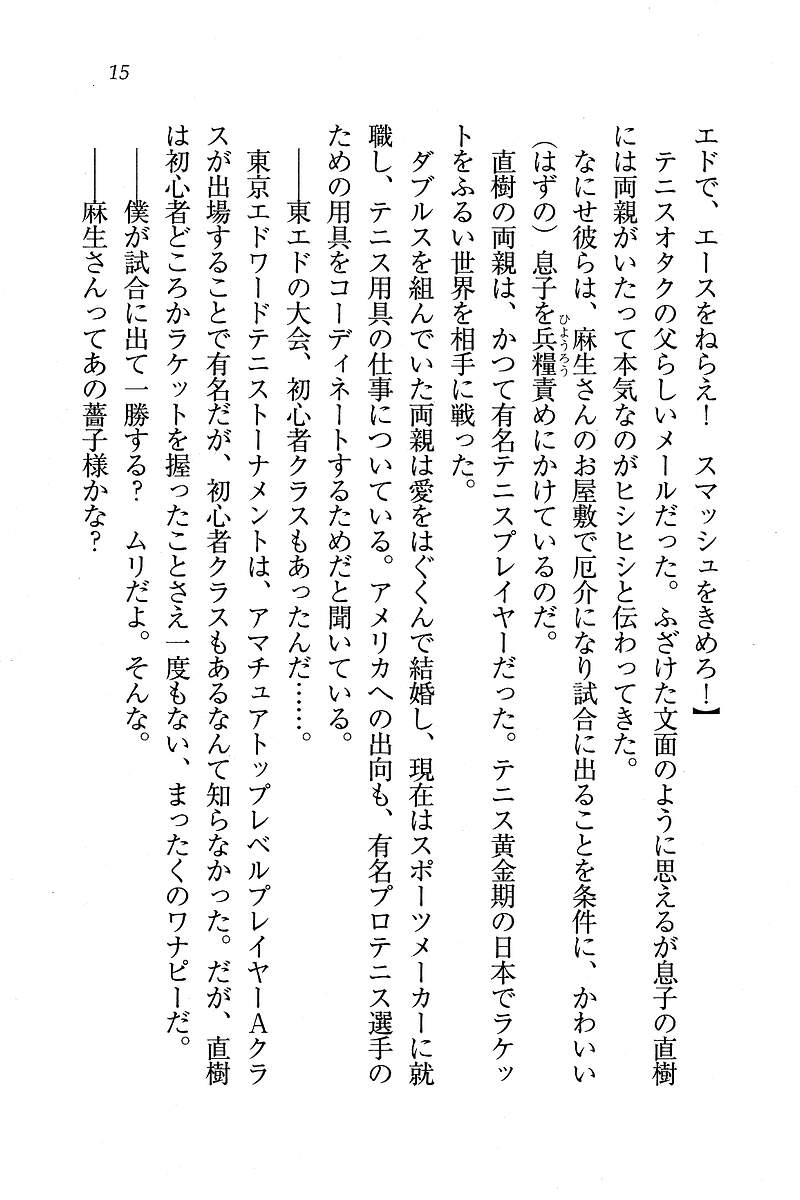 15
エドで、エースをねらえ！　スマッシュをきめろ！】
　テニスオタクの父らしいメールだった。ふざけた文面のように思えるが息子の直樹
には両親がいたって本気なのがヒシヒシと伝わってきた。
　なにせ彼らは、麻生さんのお屋敷で厄介になり試合に出ることを条件に、かわいい
（はずの）息子を兵糧責めにかけているのだ。
ひようろう
　直樹の両親は、かつて有名テニスプレイヤーだった。テニス黄金期の日本でラケッ
トをふるい世界を相手に戦った。
　ダブルスを組んでいた両親は愛をはぐくんで結婚し、現在はスポーツメーカーに就
職し、テニス用具の仕事についている。アメリカへの出向も、有名プロテニス選手の
ための用具をコーディネートするためだと聞いている。
　――東エドの大会、初心者クラスもあったんだ……。
　東京エドワードテニストーナメントは、アマチュアトップレベルプレイヤーAクラ
スが出場することで有名だが、初心者クラスもあるなんて知らなかった。だが、直樹
は初心者どころかラケットを握ったことさえ一度もない、まったくのワナピーだ。
　――僕が試合に出て一勝する？　ムリだよ。そんな。
　――麻生さんってあの薔子様かな？